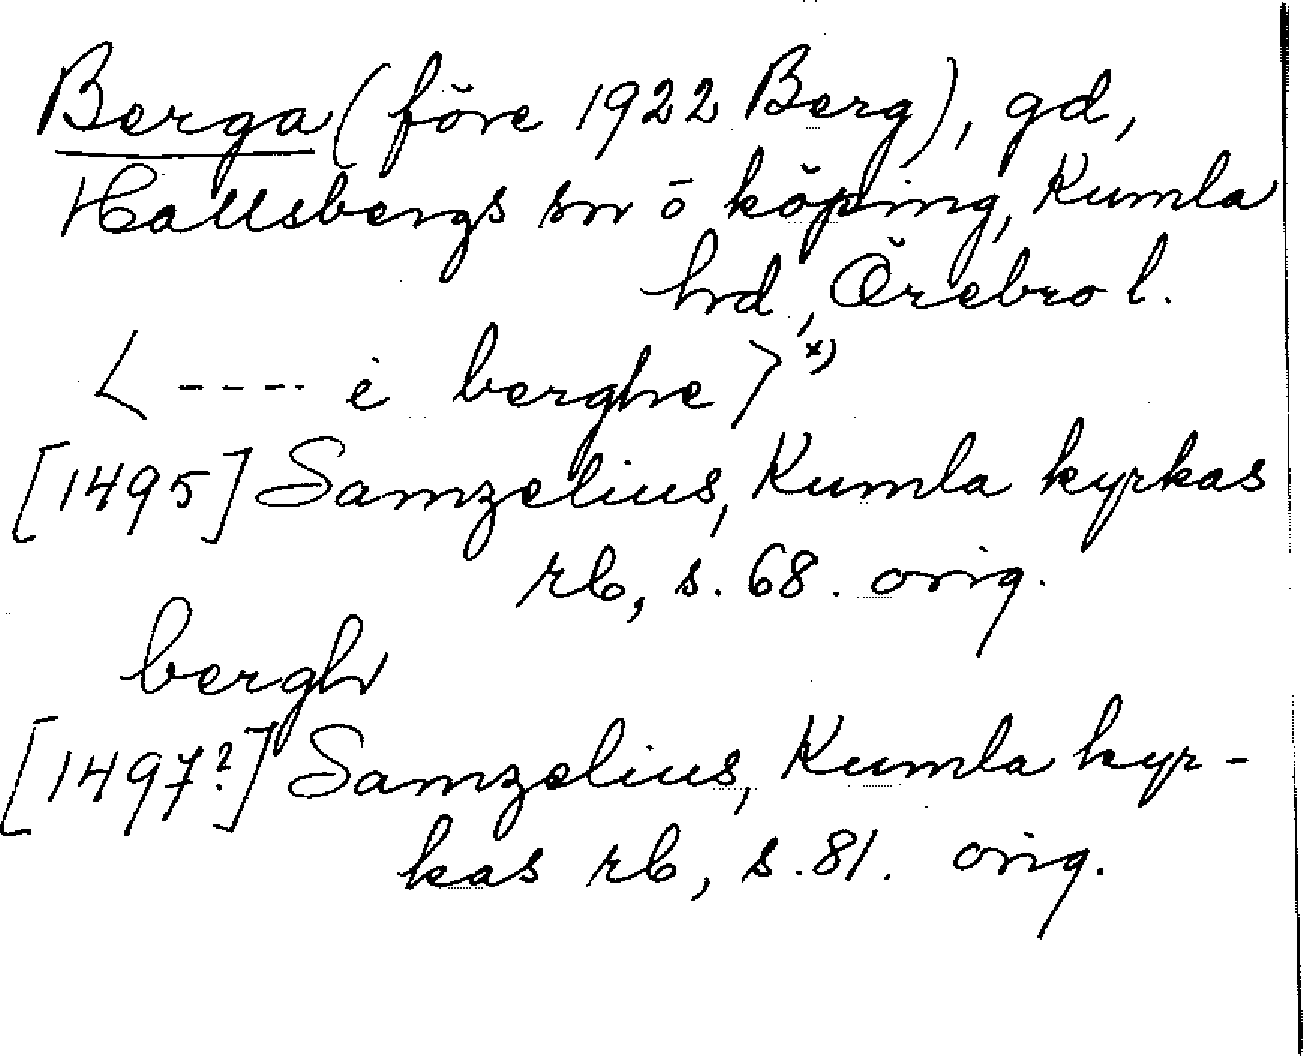 Berga (före 1922 Berg), gd,
Hallsbergs sn o köping, Kumla
hd, Örebro l.
< ---- i berghe > x)
[1495] Samzelius, Kumla kyrkas
rb, s. 68. orig.
bergh
[1497?] Samzelius, Kumla kyr-
kas rb, s. 81. orig.